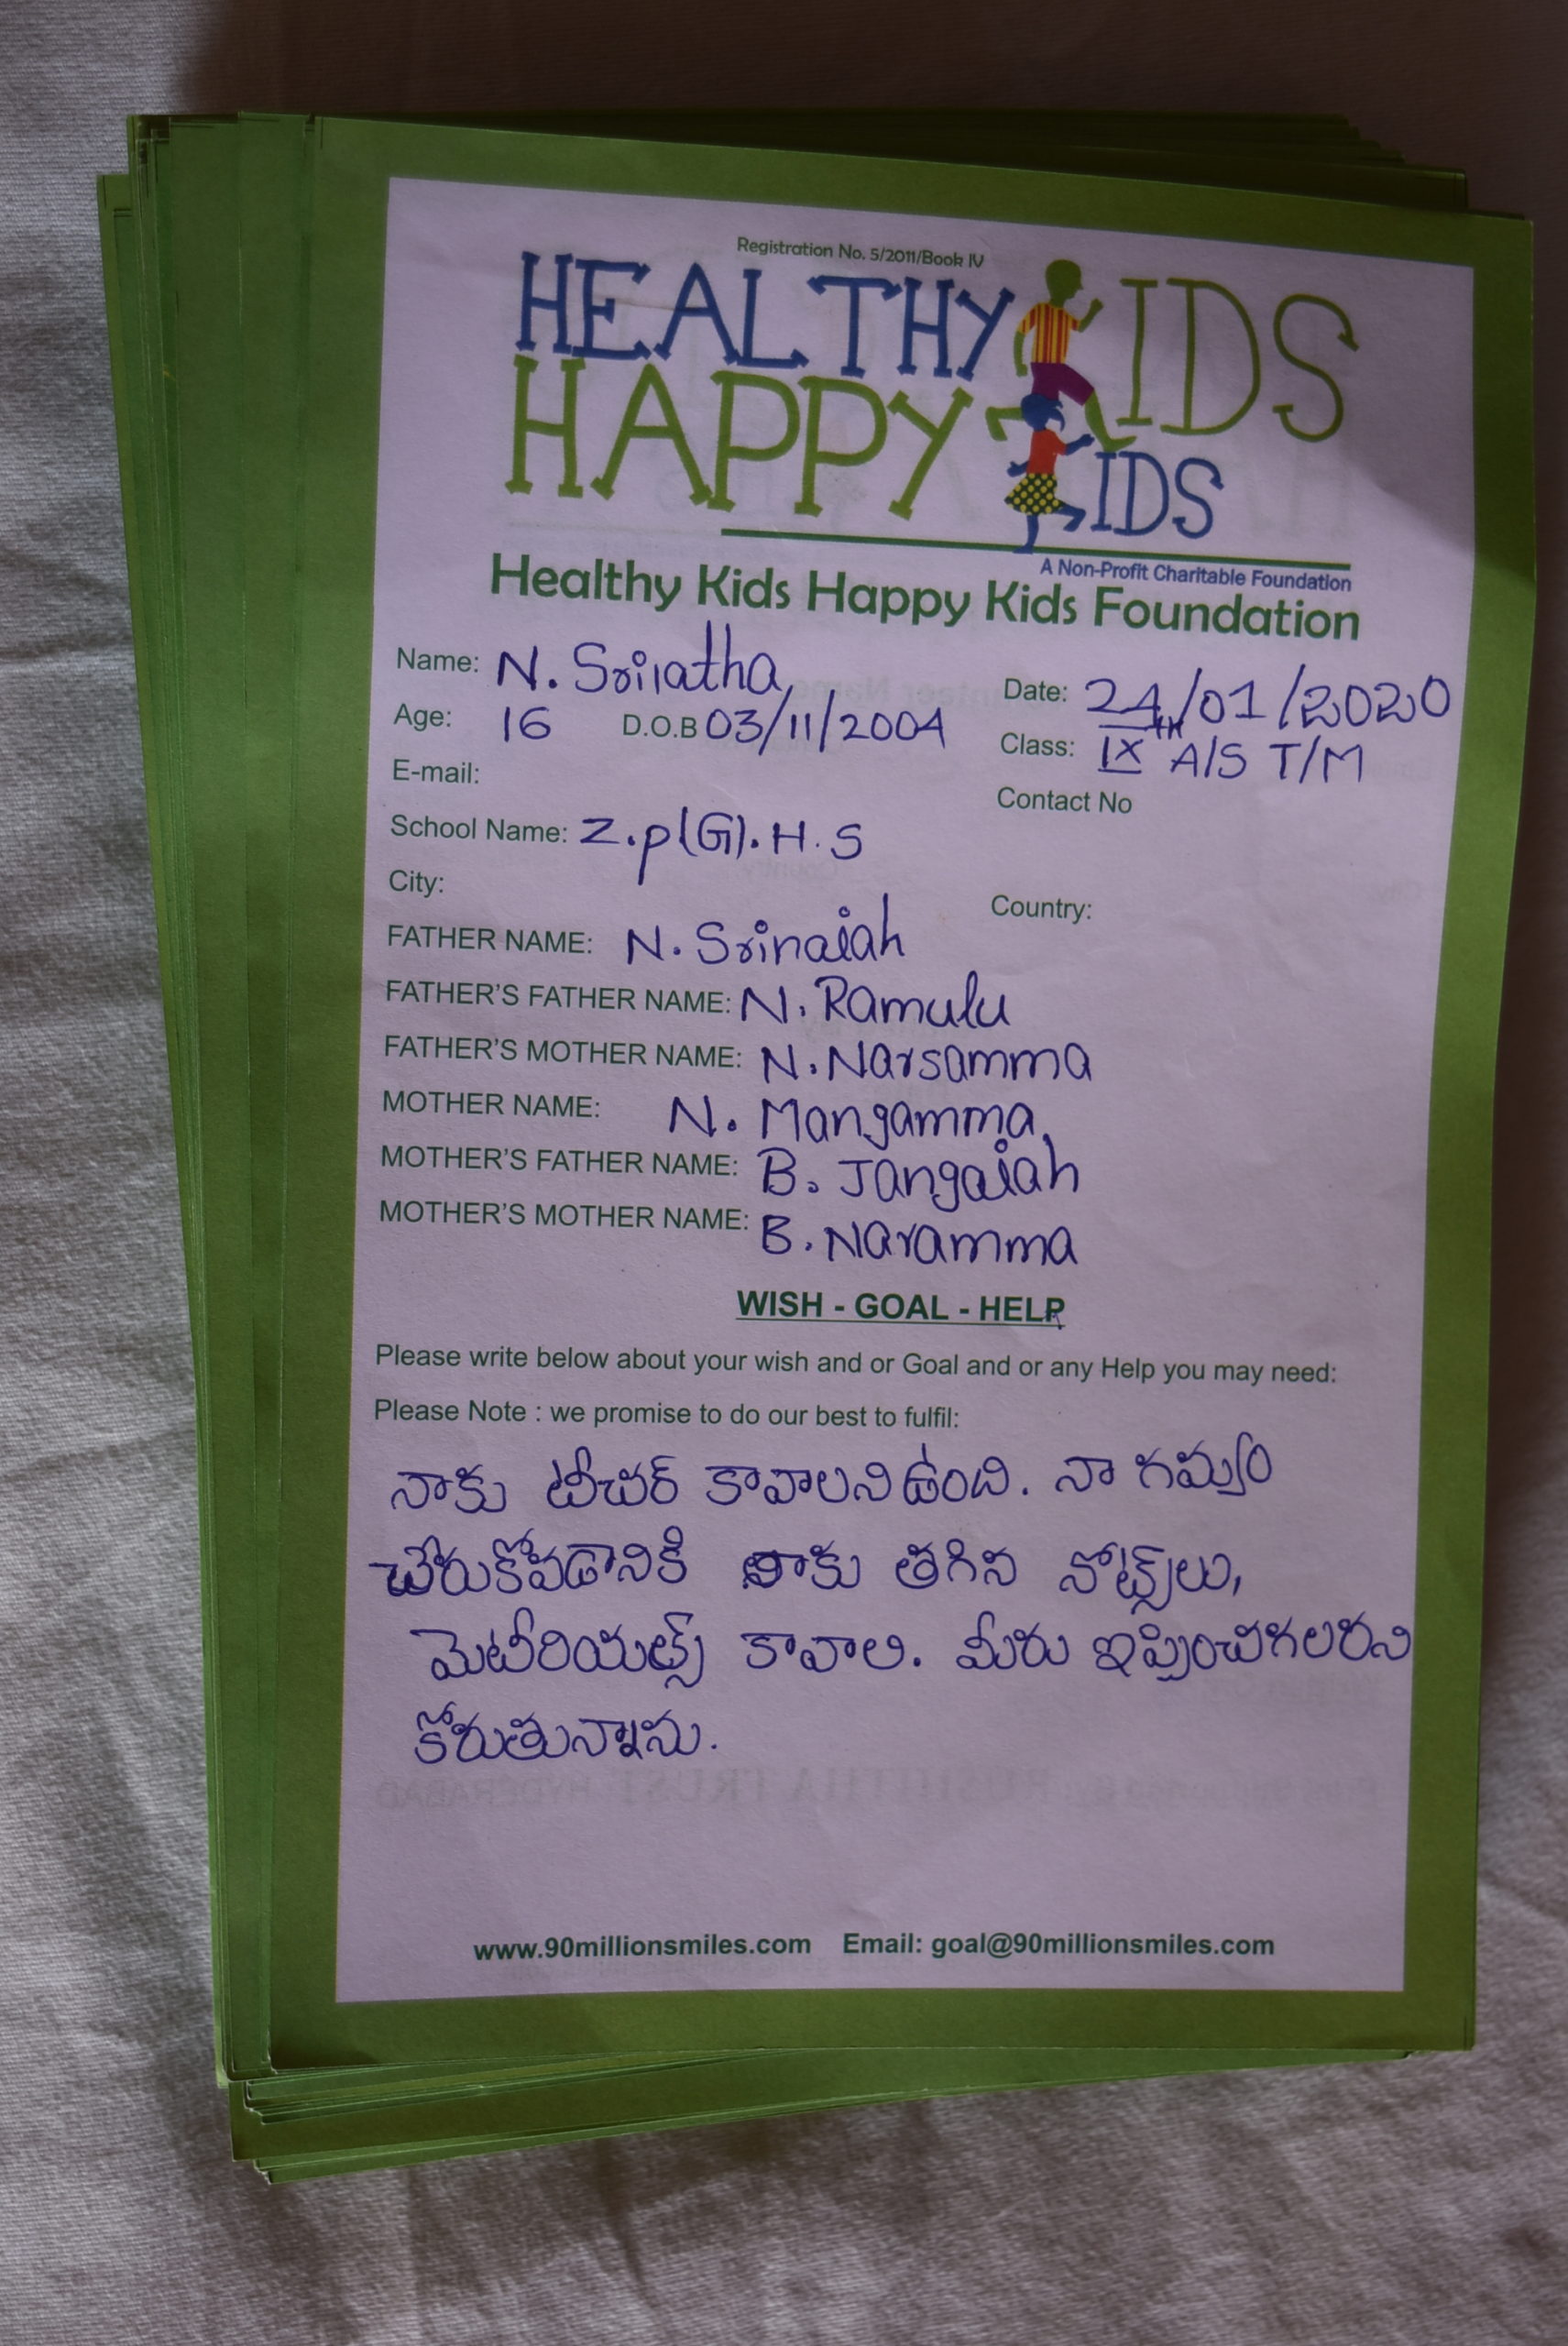 Registration No. 5/2011/Book IV
HEALTHY KIDS
HAPPY KIDS
A Non-Profit Charitable Foundation
Healthy Kids Happy Kids Foundation
Name: N. Srilatha Date: 24/01/2020
Age: 16 D.O.B 03/11/2004 Class: IXth A/S T/M
E-mail: Contact No
School Name: Z.p(G).H.S
City: Country:
FATHER NAME: N. Srinaiah
FATHER'S FATHER NAME: N. Ramulu
FATHER'S MOTHER NAME: N. Narsamma
MOTHER NAME: N. Mangamma,
MOTHER'S FATHER NAME: B. Jangaiah
MOTHER'S MOTHER NAME: B. Naramma
WISH - GOAL - HELP
Please write below about your wish and or Goal and or any Help you may need:
Please Note : we promise to do our best to fulfil:
నాకు టీచర్ కావాలని ఉంది. నా గమ్యం
చేరుకోవడానికి నాకు తగిన నోట్స్‌లు,
మెటీరియల్స్ కావాలి. మీరు ఇప్పించగలరని
కోరుతున్నాను.
www.90millionsmiles.com Email: goal@90millionsmiles.com